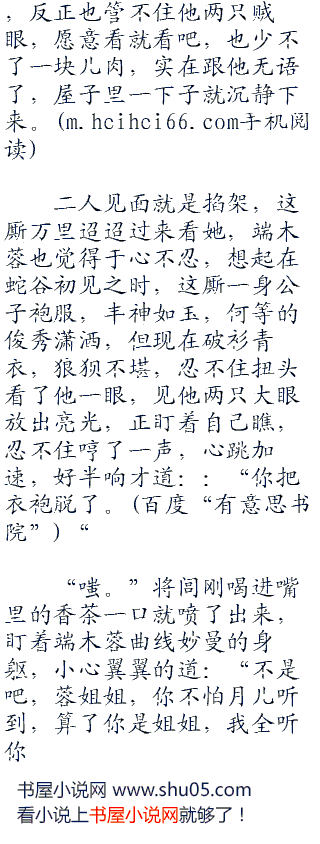 ，反正也管不住他两只贼
眼，愿意看就看吧，也少不
了一块儿肉，实在跟他无语
了，屋子里一下子就沉静下
来。(m.hcihci66.com手机阅
读)
二人见面就是掐架，这
厮万里迢迢过来看她，端木
蓉也觉得于心不忍，想起在
蛇谷初见之时，这厮一身公
子袍服，丰神如玉，何等的
俊秀潇洒，但现在破衫青
衣，狼狈不堪，忍不住扭头
看了他一眼，见他两只大眼
放出亮光，正盯着自己瞧，
忍不住哼了一声，心跳加
速，好半响才道：：“你把
衣袍脱了。(百度“有意思书
院”)“
“嗤。”将闾刚喝进嘴
里的香茶一口就喷了出来，
盯着端木蓉曲线妙曼的身
躯，小心翼翼的道：“不是
吧，蓉姐姐，你不怕月儿听
到，算了你是姐姐，我全听
你
书屋小说网 www.shu05.com
看小说上书屋小说网就够了！